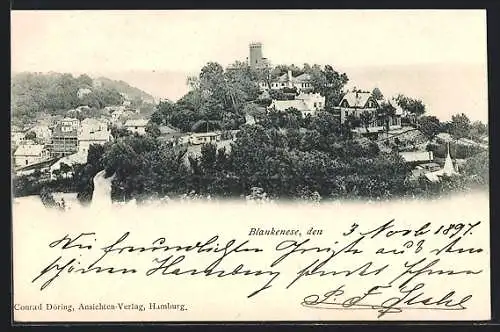 Blankenese, den 3 Novb 1897.
Die freundlichsten Grüße aus dem
schönen Hamburg sendet Ihnen
Conrad Döring, Ansichten-Verlag, Hamburg.